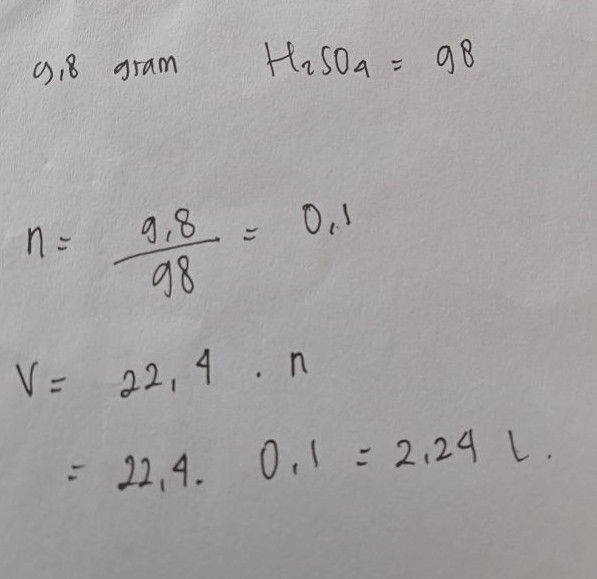 9,8 gram H₂SO₄ = 98
n = 9,8 / 98 = 0,1
V = 22,4 . n
= 22,4. 0,1 = 2,24 L.